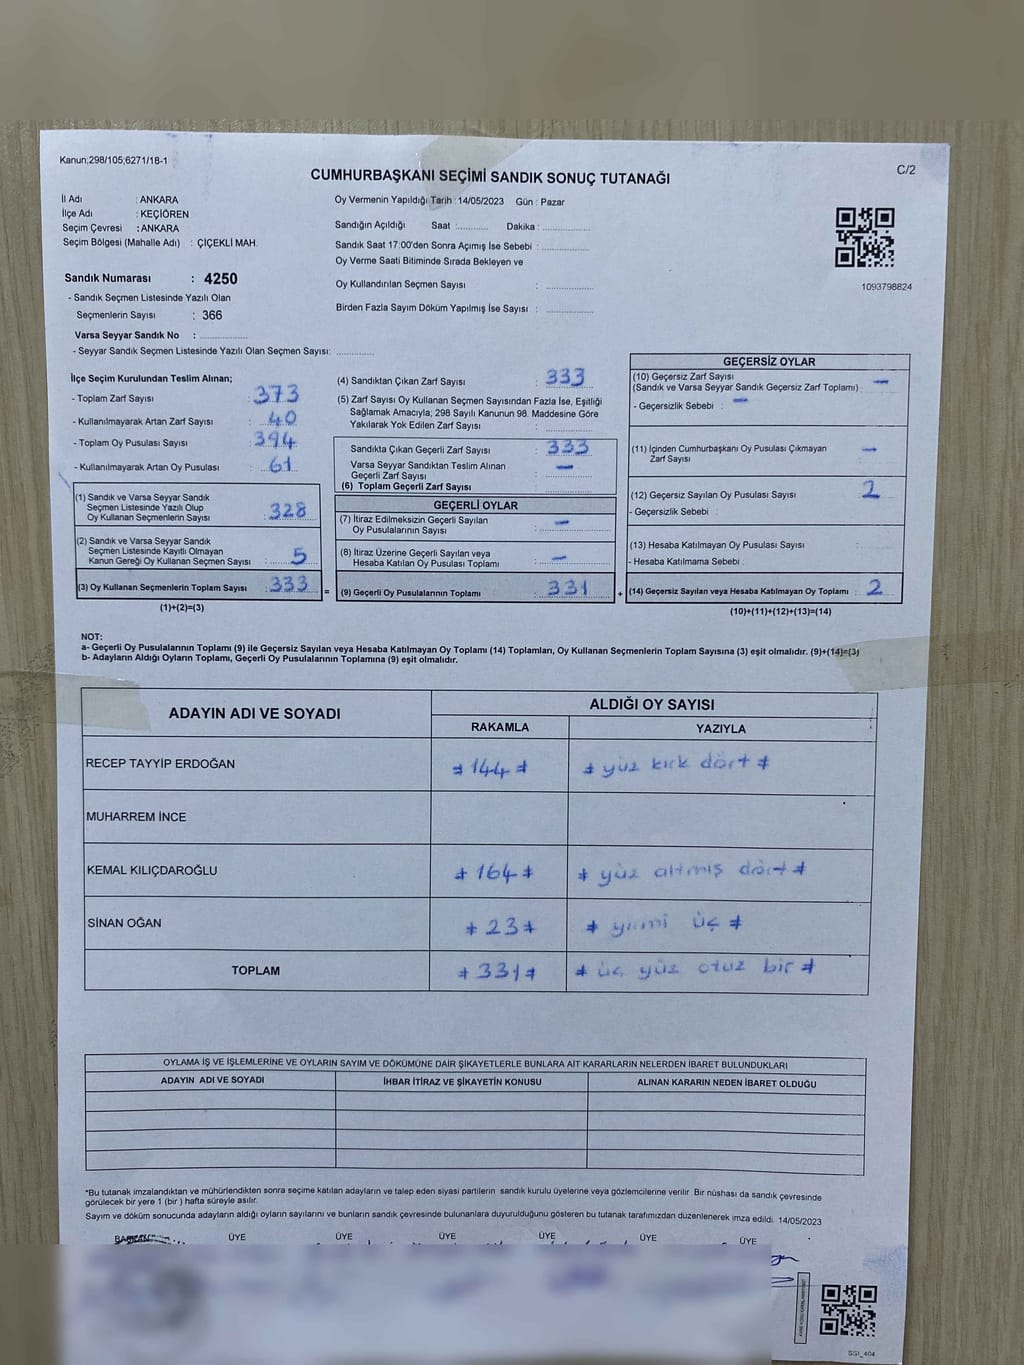 Kanun;298/105;6271/18-1
C/2
CUMHURBAŞKANI SEÇİMİ SANDIK SONUÇ TUTANAĞI
İl Adı : ANKARA
İlçe Adı : KEÇİÖREN
Seçim Çevresi : ANKARA
Seçim Bölgesi (Mahalle Adı) : ÇİÇEKLİ MAH.
Oy Vermenin Yapıldığı Tarih : 14/05/2023 Gün : Pazar
Sandığın Açıldığı Saat ............ Dakika : ...............
Sandık Saat 17:00'den Sonra Açımış İse Sebebi : ...............
Oy Verme Saati Bitiminde Sırada Bekleyen ve
Oy Kullandırılan Seçmen Sayısı : ...............
Birden Fazla Sayım Döküm Yapılmış İse Sayısı : ...............
1093798824
Sandık Numarası : 4250
- Sandık Seçmen Listesinde Yazılı Olan
Seçmenlerin Sayısı : 366
Varsa Seyyar Sandık No : ...............
- Seyyar Sandık Seçmen Listesinde Yazılı Olan Seçmen Sayısı: ............
İlçe Seçim Kurulundan Teslim Alınan;
- Toplam Zarf Sayısı : 373
- Kullanılmayarak Artan Zarf Sayısı : 40
- Toplam Oy Pusulası Sayısı : 394
- Kullanılmayarak Artan Oy Pusulası : 61
(1) Sandık ve Varsa Seyyar Sandık
Seçmen Listesinde Yazılı Olup
Oy Kullanan Seçmenlerin Sayısı : 328
(2) Sandık ve Varsa Seyyar Sandık
Seçmen Listesinde Kayıtlı Olmayan
Kanun Gereği Oy Kullanan Seçmen Sayısı : 5
(3) Oy Kullanan Seçmenlerin Toplam Sayısı : 333 =
(1)+(2)=(3)
(4) Sandıktan Çıkan Zarf Sayısı : 333
(5) Zarf Sayısı Oy Kullanan Seçmen Sayısından Fazla İse, Eşitliği
Sağlamak Amacıyla; 298 Sayılı Kanunun 98. Maddesine Göre
Yakılarak Yok Edilen Zarf Sayısı : ...............
Sandıkta Çıkan Geçerli Zarf Sayısı : 333
Varsa Seyyar Sandıktan Teslim Alınan
Geçerli Zarf Sayısı : —
(6) Toplam Geçerli Zarf Sayısı ...............
GEÇERLİ OYLAR
(7) İtiraz Edilmeksizin Geçerli Sayılan
Oy Pusulalarının Sayısı : —
(8) İtiraz Üzerine Geçerli Sayılan veya
Hesaba Katılan Oy Pusulası Toplamı : —
(9) Geçerli Oy Pusulalarının Toplamı : 331 +
GEÇERSİZ OYLAR
(10) Geçersiz Zarf Sayısı
(Sandık ve Varsa Seyyar Sandık Geçersiz Zarf Toplamı) : —
- Geçersizlik Sebebi : —
(11) İçinden Cumhurbaşkanı Oy Pusulası Çıkmayan
Zarf Sayısı : —
(12) Geçersiz Sayılan Oy Pusulası Sayısı : 2
- Geçersizlik Sebebi :
(13) Hesaba Katılmayan Oy Pusulası Sayısı :
- Hesaba Katılmama Sebebi :
(14) Geçersiz Sayılan veya Hesaba Katılmayan Oy Toplamı : 2
(10)+(11)+(12)+(13)=(14)
NOT:
a- Geçerli Oy Pusulalarının Toplamı (9) ile Geçersiz Sayılan veya Hesaba Katılmayan Oy Toplamı (14) Toplamları, Oy Kullanan Seçmenlerin Toplam Sayısına (3) eşit olmalıdır. (9)+(14)=(3)
b- Adayların Aldığı Oyların Toplamı, Geçerli Oy Pusulalarının Toplamına (9) eşit olmalıdır.
ADAYIN ADI VE SOYADI
ALDIĞI OY SAYISI
RAKAMLA YAZIYLA
RECEP TAYYİP ERDOĞAN 144 yüz kırk dört
MUHARREM İNCE
KEMAL KILIÇDAROĞLU 164 yüz altmış dört
SİNAN OĞAN 23 yirmi üç
TOPLAM 331 üç yüz otuz bir
OYLAMA İŞ VE İŞLEMLERİNE VE OYLARIN SAYIM VE DÖKÜMÜNE DAİR ŞİKAYETLERLE BUNLARA AİT KARARLARIN NELERDEN İBARET BULUNDUKLARI
ADAYIN ADI VE SOYADI İHBAR İTİRAZ VE ŞİKAYETİN KONUSU ALINAN KARARIN NEDEN İBARET OLDUĞU
*Bu tutanak imzalandıktan ve mühürlendikten sonra seçime katılan adayların ve talep eden siyasi partilerin sandık kurulu üyelerine veya gözlemcilerine verilir. Bir nüshası da sandık çevresinde
görülecek bir yere 1 (bir ) hafta süreyle asılır.
Sayım ve döküm sonucunda adayların aldığı oyların sayılarını ve bunların sandık çevresinde bulunanlara duyurulduğunu gösteren bu tutanak tarafımızdan düzenlenerek imza edildi. 14/05/2023
ÜYE ÜYE ÜYE ÜYE ÜYE ÜYE
SSI_404